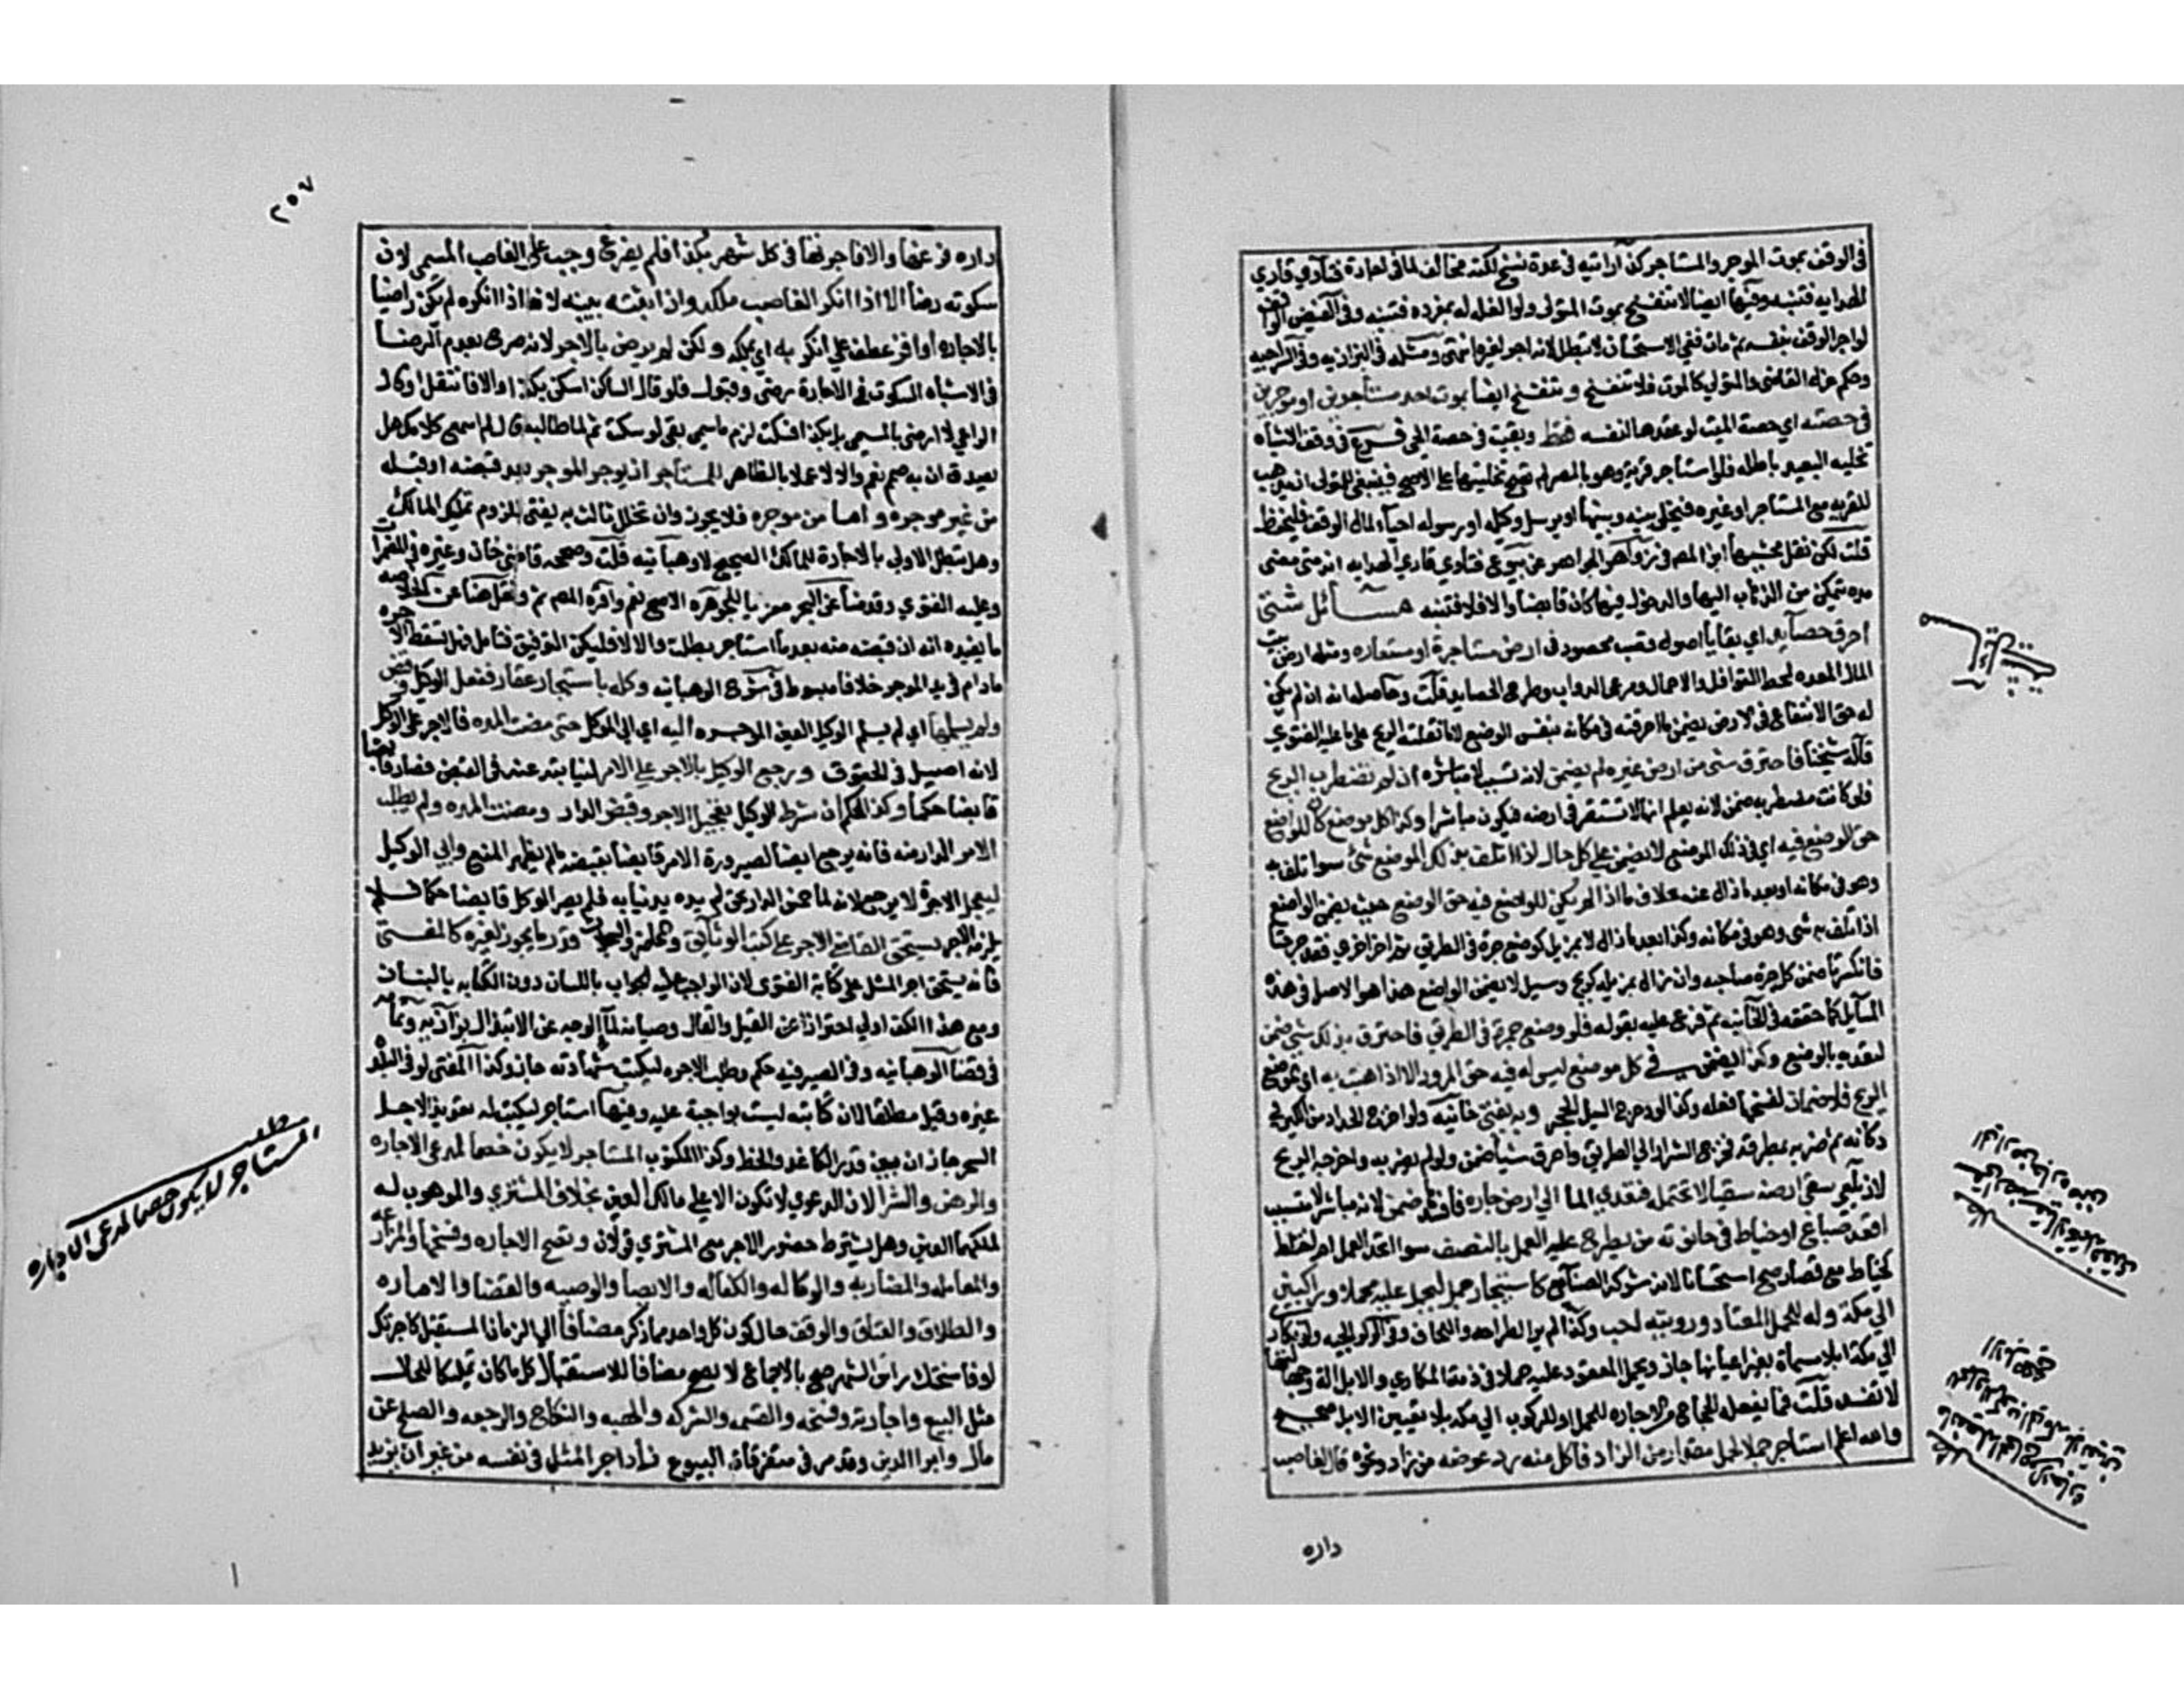 في الوقف بموت الموجر والمستاجر كذا رايته في عدة نسخ لكنه مخالف لما في اجارة فتاوي قاري
الهدايه فتنبه وفيها ايضا لا تنفسخ بموت المتولي ولو الغله له بمفرده فتنبه وفي الفيض الواقف
لو اجر الوقف بنفسه ثم مات ففي الاستحسان لا تبطل لانه اجر لغيره ومثله في البزازيه وفي السراجيه
وحكم عزل القاضي والمتولي كالموت فلا تنفسخ وتنفسخ ايضا بموت احد مستاجرين او موجرين
في حصته اي حصة الميت لو عقدها لنفسه فقط وبقيت في حصة الحي فرع في وقف الاشباه
تخليه البعيد باطله فلو استاجر قرية وهو بالمصر لم تصح تخليتها على الاصح فينبغي للمتولي ان يذهب
للقريه مع المستاجر او غيره فيخلي بينه وبينها او يرسل وكيله او رسوله احياء لمال الوقف فليحفظ
قلت لكن نقل محشيها ابن المص في زواهر الجواهر عن بيوع فتاوي قاري الهدايه انه متى مضى
مده يتمكن من الذهاب اليها والدخول فيها كان قابضا والا فلا فتنبه مسائل شتى
احرق حصايد اي بقايا اصول قصب محصود في ارض مستاجرة او مستعاره ومثله ارض بيت
المال المعده لحط القوافل والاحمال ومرعى الدواب وطرح الحصايد قلت وحاصله انه ان لم يكن
له حق الانتفاع في الارض يضمن ما احرقته في مكانه بنفس الوضع لا ما نقلته الريح على ما عليه الفتوي
قاله شيخنا فاحترق شي من ارض غيره لم يضمن لانه تسبب لا مباشره ان لم تضطرب الريح
فلو كانت مضطربه ضمن لانه يعلم انها لا تستقر في ارضه فيكون مباشرا وكذا كل موضع كان للواضع
حق الوضع فيه اي في ذلك الموضع لا يضمن على كل حال اذا تلف بذلك الموضع شي سوا تلف به
وهو في مكانه او بعد ما زال عنه بخلاف ما اذا لم يكن للواضع فيه حق الوضع حيث يضمن الواضع
اذا تلف به شي وهو في مكانه وكذا بعد ما زال لا بمزيل كوضع جرة في الطريق ثم اخر اخري فتدحرجتا
فانكسرتا ضمن كل جرة صاحبه وان زال بمزيل كريح وسيل لا يضمن الواضع هذا هو الاصل في هذه
المسايل كما حققه في الخانيه ثم فرع عليه بقوله فلو وضع جمرة في الطريق فاحترق بذلك شي ضمن
لتعديه بالوضع وكذا يضمن في كل موضع ليس له فيه حق المرور الا اذا هبت به اي بموضع
الريح فلا ضمان لفسخها فعله وكذا لو دحرج السيل الحجر وبه يفتى خانيه ولو اخرج الحداد من الكير في
دكانه ثم ضربه بمطرقه فخرج الشرار الي الطريق واحرق شيا ضمن ولو لم يضربه واخرجه الريح
لا زيلعي سقى ارضه سقيا لا تحتمله فتعدي الما الي ارض جاره فافسد ضمن لانه مباشر لا متسبب
اقعد صباغ او خياط في حانوته من يطرح عليه العمل بالنصف سوا اتحد العمل ام اختلط
كخياط مع قصار صح استحسانا لانه شركة الصنايع كاستيجار جمل ليحمل عليه محملا وراكبين
الي مكة وله المحمل المعتاد ورويته احب وكذا لم ير الطراحه واللحاف وفي الولوالجيه ولو تكاري
الي مكة ابلا مسماة بغير اعيانها جاز ويحمل المعقود عليه حملا في ذمة المكاري والابل الة وجهالتها
لا تفسد قلت فما يفعله الحجاج من الاجاره للحمل او الركوب الي مكه بلا تعيين الابل صحيح
والله اعلم استاجر جملا لحمل مقدار من الزاد فاكل منه رد عوضه من زاد ونحوه قال لغاصب
داره
٢٥٧
داره فرغها والا فاجرتها في كل شهر بكذا فلم يفرغ وجب على الغاصب المسمي لان
سكوته رضا الا اذا انكر الغاصب ملكه وان اثبته ببينه لانه اذا انكره لم يكن راضيا
بالاجاره او اقر عطف على انكر به اي بملكه ولكن لم يرض بالاجر لانه صرح بعدم الرضا
في الاشباه السكوت في الاجارة رضى وقبول فلو قال للساكن اسكن بكذا والا فانتقل او قال
الراعي لا ارضى بالمسمي بل بكذا فسكت لزم ما سمي بقي لو سكت ثم لما طالبه قال لم اسمع كلامك هل
يصدق ان به صمم نعم والا لا عملا بالظاهر للمستاجر ان يوجر الموجر بعد قبضه او قبله
من غير موجره واما من موجره فلا يجوز وان تخلل ثالث به يفتى للزوم تمليك المالك
وهل تبطل الاولى بالاجارة للمالك الصحيح لا وهبانيه قلت وصححه قاضي خان وغيره في المضمرات
وعليه الفتوي وقدمنا عن البحر معزيا للجوهره الاصح نعم واقره المص ثم ونقل هنا عن الخلاصه
ما يفيده انه ان قبضه منه بعد ما استاجر بطلت والا لا فليكن التوفيق فتامل فهل تسقط الاجره
ما دام في يد الموجر خلاف مبسوط في شرح الوهبانيه وكله باستيجار عقار ففعل الوكيل وقبض
ولم يسلمها اي لم يسلم الوكيل العين الموجره اليه اي الى الموكل حتى مضت المده فالاجر على الوكيل
لانه اصيل في الحقوق ورجع الوكيل بالاجر على الامر لنيابته عنه في القبض فصار قابضا
قابضا حكما وكذا الحكم ان شرط الوكيل تعجيل الاجر وقبض الدار ومضت المده ولم يطلب
الامر الدار منه فانه يرجع ايضا لصيرورة الامر قابضا بقبضه ما لم يظهر المنع وابي الوكيل
ليعجل الاجرة لا يرجع لانه لما حبس الدار بحق لم يده يد نيابه فلم يصر الموكل قابضا حكما فلا
يلزمه الاجر يستحق القاضي الاجر على كتب الوثايق والمحاضر والسجلات قدر ما يجوز لغيره كالمفتى
فانه يستحق اجر المثل على كتابة الفتوى لان الواجب عليه الجواب باللسان دون الكتابه بالبنان
ومع هذا الكف اولي احترازا عن القيل والقال وصيانه لما الوجه عن الابتذال بزازيه وتمامه
في قضا الوهبانيه وفي الصيرفيه حكم وطلب الاجره ليكتب شهادته جاز وكذا المفتى لو في البلد
غيره وقيل مطلقا لان كتابته ليست بواجبة عليه وفيها استاجر ليكتب له تعويذ لاجل
السحر جاز ان بين قدر الكاغد والخط وكذا المكتوب المستاجر لا يكون خصما لمدعي الاجاره
والرهن والشرا لان الدعوي لا تكون الا على مالك العين بخلاف المشتري والموهوب له
لملكهما العين وهل يشترط حضور الاجر مع المشتري قولان وتصح الاجاره وفسخها والمزارعه
والمعامله والمضاربه والوكاله والكفاله والايصا والوصيه والقضا والاماره
والطلاق والعتاق والوقف حال كون كل واحد مما ذكر مضافا الى الزمان المستقبل كاجرتك
او فاسختك راس الشهر صح بالاجماع لا يصح مضافا للاستقبال كل ما كان تمليكا للحال
مثل البيع واجازته وفسخه والقسمه والشركه والهبه والنكاح والرجعه والصلح عن
مال وابرا الدين وقد مر في متفرقات البيوع فساد اجر المثل في نفسه من غير ان يزيد
مطلب
المستاجر لا يكون خصما لمدعي الاجاره